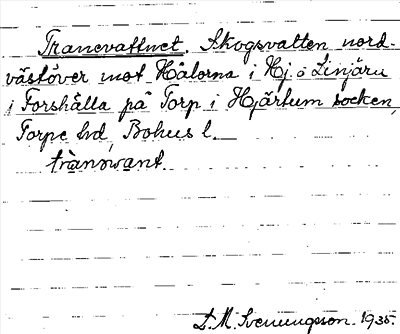 Tranevattnet. Skogsvatten nord-
västöver mot Hålorna i Hj. o Linjäru
i Forshälla på Torp i Hjärtum socken,
Torpe hd, Bohus l.
trànnvant.
S. M. Svenungsson. 1935.